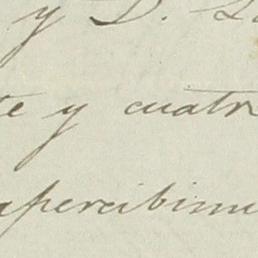 y D.
te y cuatr
apercibimi